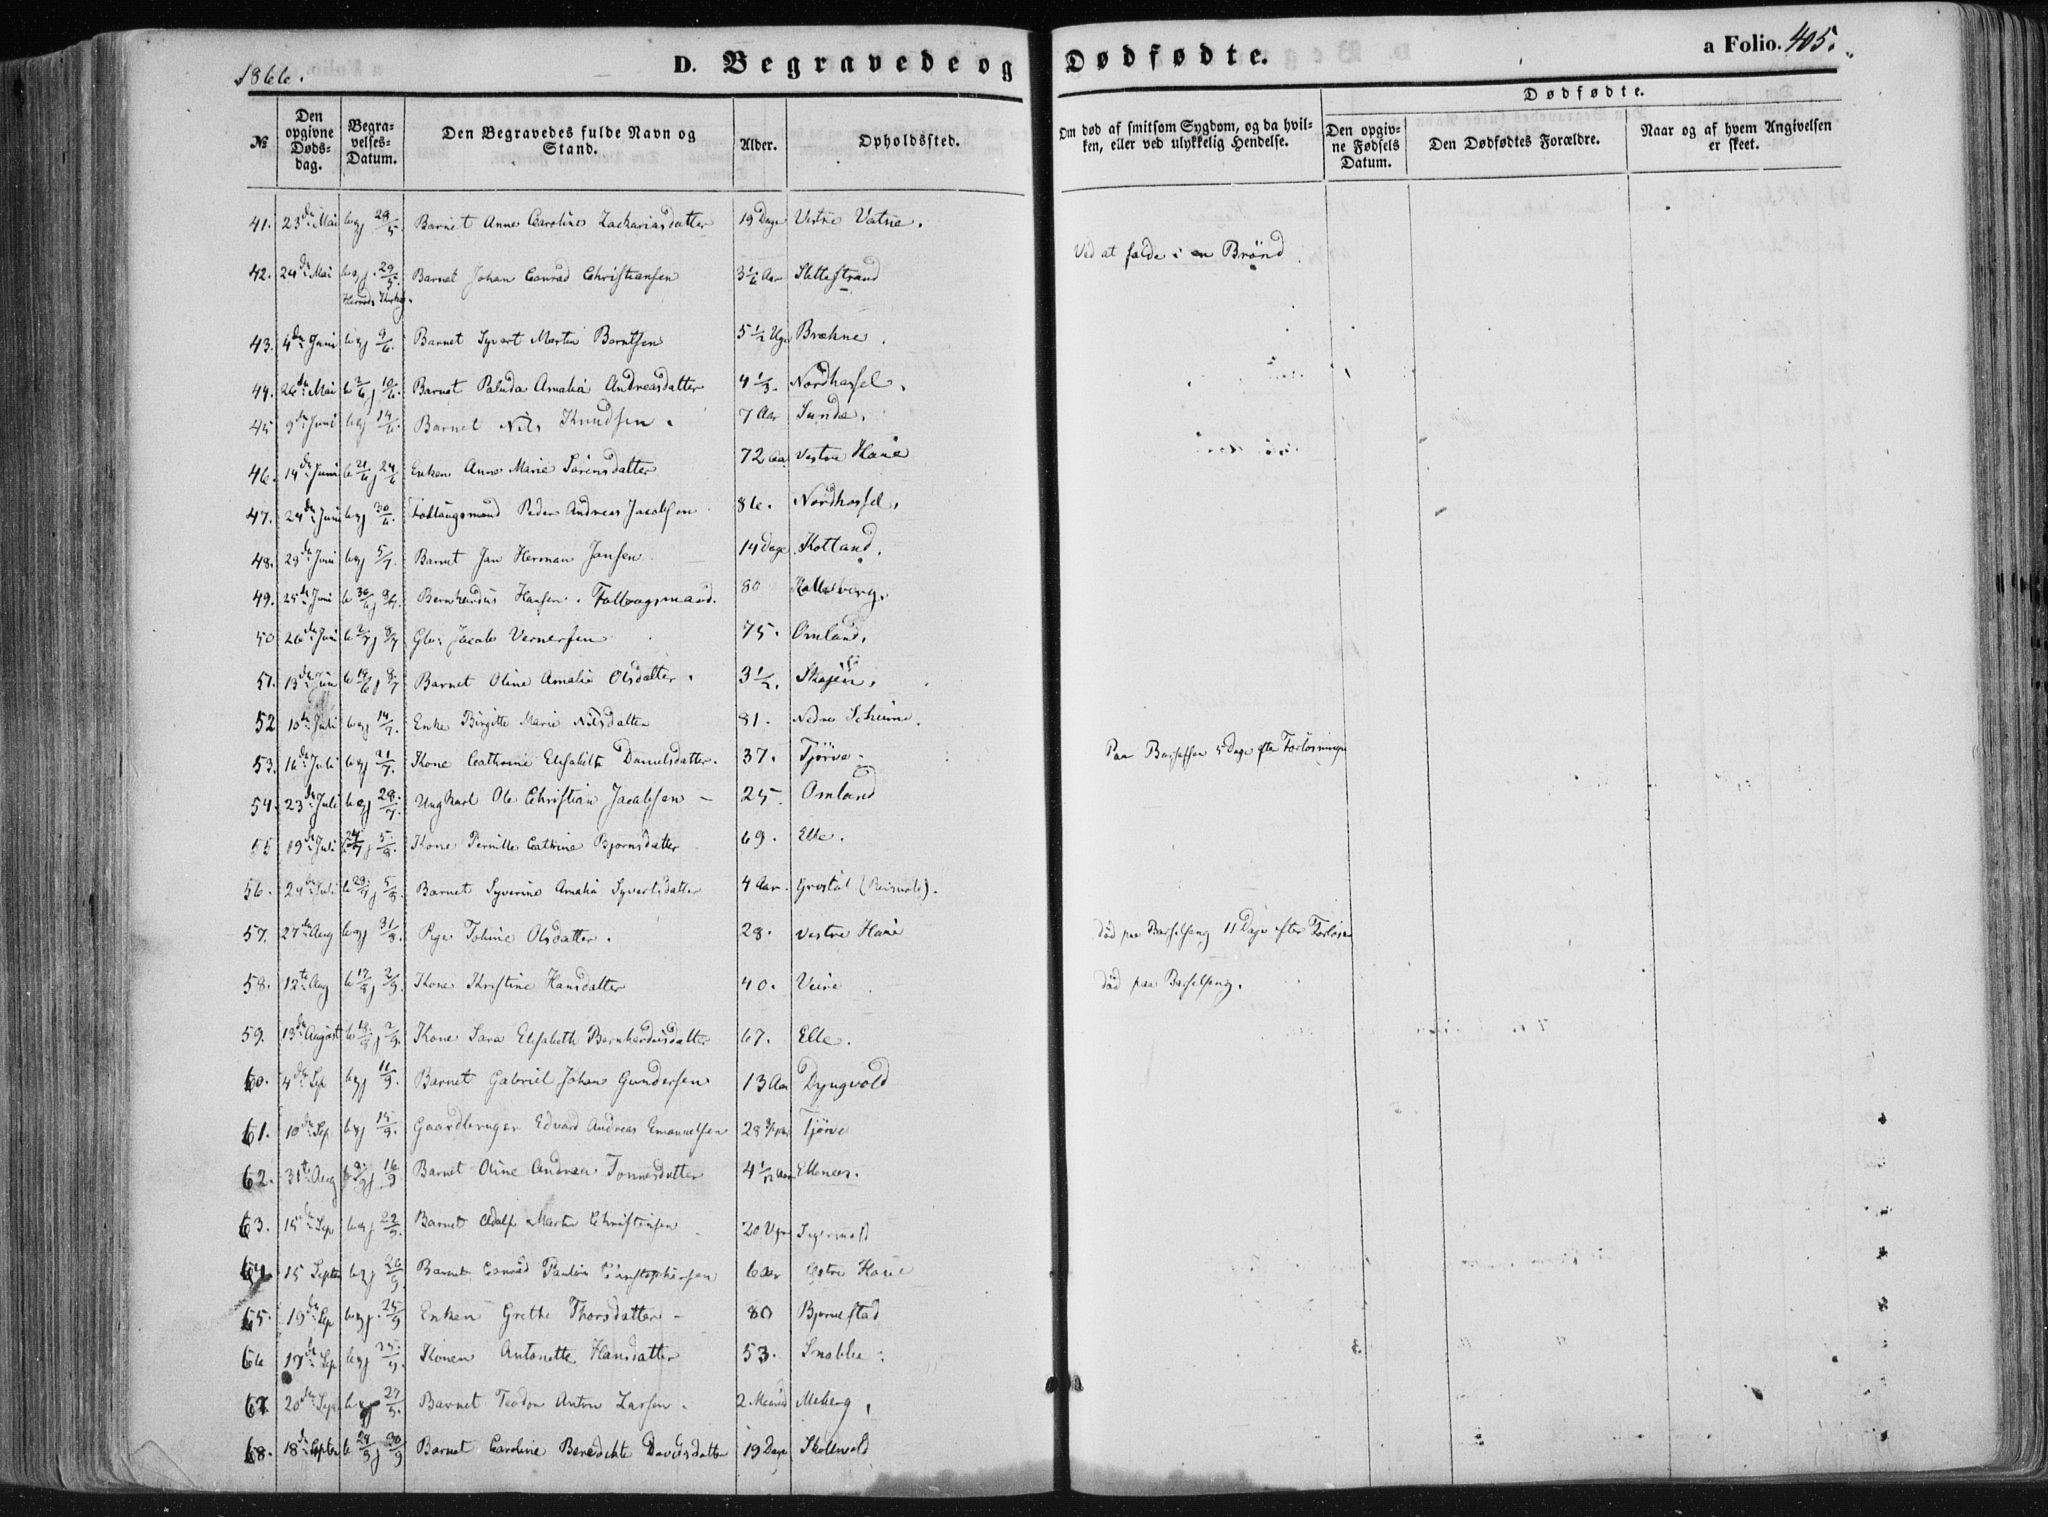 1866.
D. Begravede og Dødfødte.
a Folio. 405.
№
Den opgivne Døds-dag.
Begra-velses-Datum.
Den Begravedes fulde Navn og Stand.
Alder.
Opholdssted.
Om død af smitsom Sygdom, og da hvil-ken, eller ved ulykkelig Hendelse.
Dødfødte.
Den opgiv-ne Fødsels Datum.
Den Dødfødtes Forældre.
Naar og af hvem Angivelsen er skeet.
41. 23de Mai b og j 28/5 Barnet Anne Caroline Zachariasdatter 19 Dage Vestre Vatne.
42. 24de Mai b og j. 29/5 Barnet Johan Conrad Christiansen 3 1/6 Aar Slettestrand Ved at falde i en Brönd.
43. 4de Juni b og j 9/6. Barnet Syvert Martin Berntsen 5 1/2 Uge Brækne.
44. 26de Mai b 2/6 j 10/6. Barnet Paluda Amalia Andreasdatter 4 1/3. Nordhassel.
45 9de Juni b og j 14/6. Barnet Nils Knudsen. 7 Aar Sunde.
46. 14de Juni b 21/6 j 24/6 Enken Anne Marie Sörensdatter 72 Aar Vestre Hauie
47. 24de Juni b og j 30/6. Fodlaugsmand Peder Andreas Jacobsen 86. Nordhassel.
48. 28de Juni b og j 5/7. Barnet Jan Herman Jansen 14 Dage Kolland.
49. 25de Juni b 30/6 j 8/7. Bernhardus Hansen. Follaugsmand. 80
50 26de Juni b 2/7 j 8/7 Glo: Jacob Vernersen 75. Omland.
51. 13de Juni b 19/6 j 8/7 Barnet Oline Amalie Olsdatter. 3 1/2. Skajen.
52 10de Juli b og j 14/7. Enke Birgitte Marie Nilsdatter 81. Nedre Scheime.
53. 16de Juli b og j 21/7. Kone Cathrine Elisabeth Danielsdatter. 37. Tjörve Paa Barselsen 5 Dage efte Forløsningen
54. 23de Juli b og j 28/7 Ungkarl Ole Christian Jacobsen 25. Omland
55 19de Juli b 24/7 j 5/8. Kone Pernille Cathrine Bjornsdatter 69. Elle.
56. 24de Juli b 29/7 j 5/8 Barnet Syverine Amalia Syvertsdatter 4 Aar.
57. 27de Aug b og j 31/8. Pige Tobine Olsdatter. 28. Vestre Hauie död paa Barselseng 11 Dage efter Forløsn
58. 12te Aug b 17/8 j 2/9. Kone Kristine Hansdatter 40. Veire död paa Barselseng.
59. 13de August b 18/8 j 2/9. Kone Sara Elisabeth Bernhardusdatter 67. Elle.
60. 4de Sep b og j 11/9. Barnet Gabriel Johan Gundersen 13 Aar Dyngvold
61. 10de Sep b og j 15/9. Gaardbruger Edvard Andreas Emanuelsen 28 Tjörve
62. 31te Aug j. 16/9 Barnet Oline Andrea Tonnesdatter 4 1/12 Aar Ellenæs.
63. 15de Sep b og j 23/9. Barnet Adolf Martin Christensen 20 Uger
64. 15 Septem b og j 26/9 Barnet Conrad Paulin Christophersen 6 Aar Østre Hauie
65. 19de Sep b og j. 25/9 Enken Grethe Thorsdatter 80 Bjornestad
66 17de Sep b og j 25/9. Konen Antonette Hansdatter 53. Snabbe
67. 20de Sep b og j 27/9. Barnet Teodor Anton Larsen. 2 Maaned Meberg,
68. 18de Septem b 24/9 j 30/9 Barnet Caroline Benedikte Davidsdatter 19 Dage Skollevold